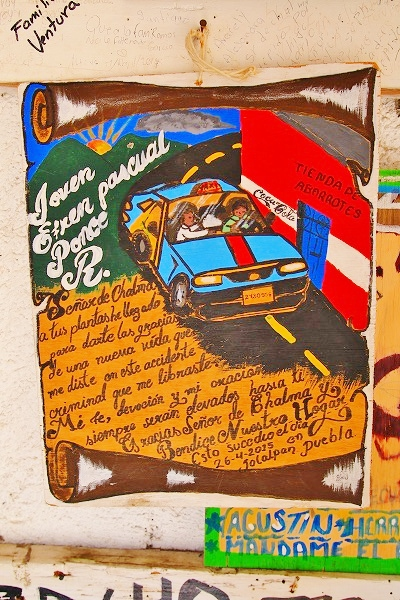 Familia
Ventura
Joven
Efren pascual
Ponce
R.
TIENDA DE
ABARROTES
Coca-Cola
Señor de Chalma
a tus plantas he llegado
para darte las gracias
de una nueva vida que
me diste en este accidente
criminal que me libraste
Mi fe, devoción y mi oración
siempre serán elevados hasta ti
Gracias Señor de Chalma y
Bendice Nuestro Hogar
Esto sucedio el dia
26-4-2015 en
Jolalpan Puebla
AGUSTIN HERR
MANDAME EL